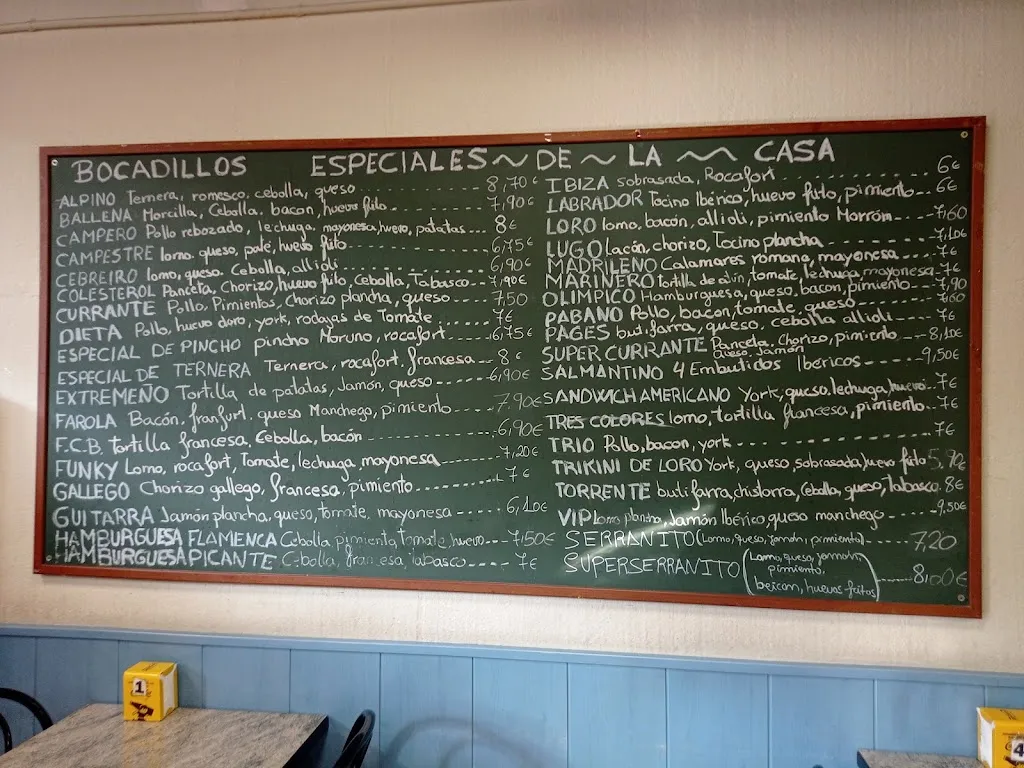 BOCADILLOS ESPECIALES ~ DE ~ LA ~ CASA
ALPINO Ternera, romesco, cebolla, queso 8,70€
BALLENA Morcilla, Cebolla, bacon, huevo frito 7,90€
CAMPERO Pollo rebozado, lechuga, mayonesa, huevo, patatas 8€
CAMPESTRE lomo, queso, paté, huevo frito 6,75€
CEBREIRO lomo, queso, Cebolla, allioli 6,90€
COLESTEROL Panceta, Chorizo, huevo frito, Cebolla, Tabasco 7,90€
CURRANTE Pollo, Pimientos, Chorizo plancha, queso 7,50
DIETA Pollo, huevo duro, york, rodajas de Tomate 7€
ESPECIAL DE PINCHO pincho Moruno, rocafort 6,75€
ESPECIAL DE TERNERA Ternera, rocafort, francesa 8€
EXTREMEÑO Tortilla de patatas, Jamón, queso 6,90€
FAROLA Bacón, franfurt, queso Manchego, pimiento 7.90€
F.C.B. Tortilla francesa, Cebolla, bacón 6,90€
FUNKY Lomo, rocafort, Tomate, lechuga, mayonesa 7,20€
GALLEGO Chorizo gallego, francesa, pimiento 7€
GUITARRA Jamón plancha, queso, tomate, mayonesa 6,10€
HAMBURGUESA FLAMENCA Cebolla pimienta, tomate, huevo 7,50€
HAMBURGUESA PICANTE Cebolla, francesa, Tabasco 7€
IBIZA sobrasada, Rocafort 6€
LABRADOR Tocino Ibérico, huevo frito, pimiento 6€
LORO lomo, bacón, allioli, pimiento Morrón 7,60
LUGO lacón, chorizo, Tocino plancha 7,10€
MADRILEÑO Calamares romana, mayonesa 7€
MARINERO Tortilla de atún, tomate, lechuga, mayonesa 7€
OLIMPICO Hamburguesa, queso, bacon, pimiento 7,90
PABANO Pollo, bacon, tomate, queso 7,60
PAGES butifarra, queso, cebolla allioli 7€
SUPER CURRANTE Panceta, Chorizo, pimiento 8,10€
queso, Jamón
SALMANTINO 4 Embutidos Ibericos 9,50€
SANDWICH AMERICANO York, queso, lechuga, huevo 7€
TRES COLORES lomo, tortilla francesa, pimiento 7€
TRIO Pollo, bacon, york 7€
TRIKINI DE LORO York, queso, sobrasada, huevo frito
TORRENTE butifarra, chistorra, Cebolla, queso, Tabasco 8€
VIP Lomo plancha, Jamón Ibérico queso manchego 9,50€
SERRANITO (Lomo, queso, jamón, pimiento) 7,20
SUPERSERRANITO (Lomo, queso, jamón, pimiento, beicon, huevos fritos) 8,00€
1
4